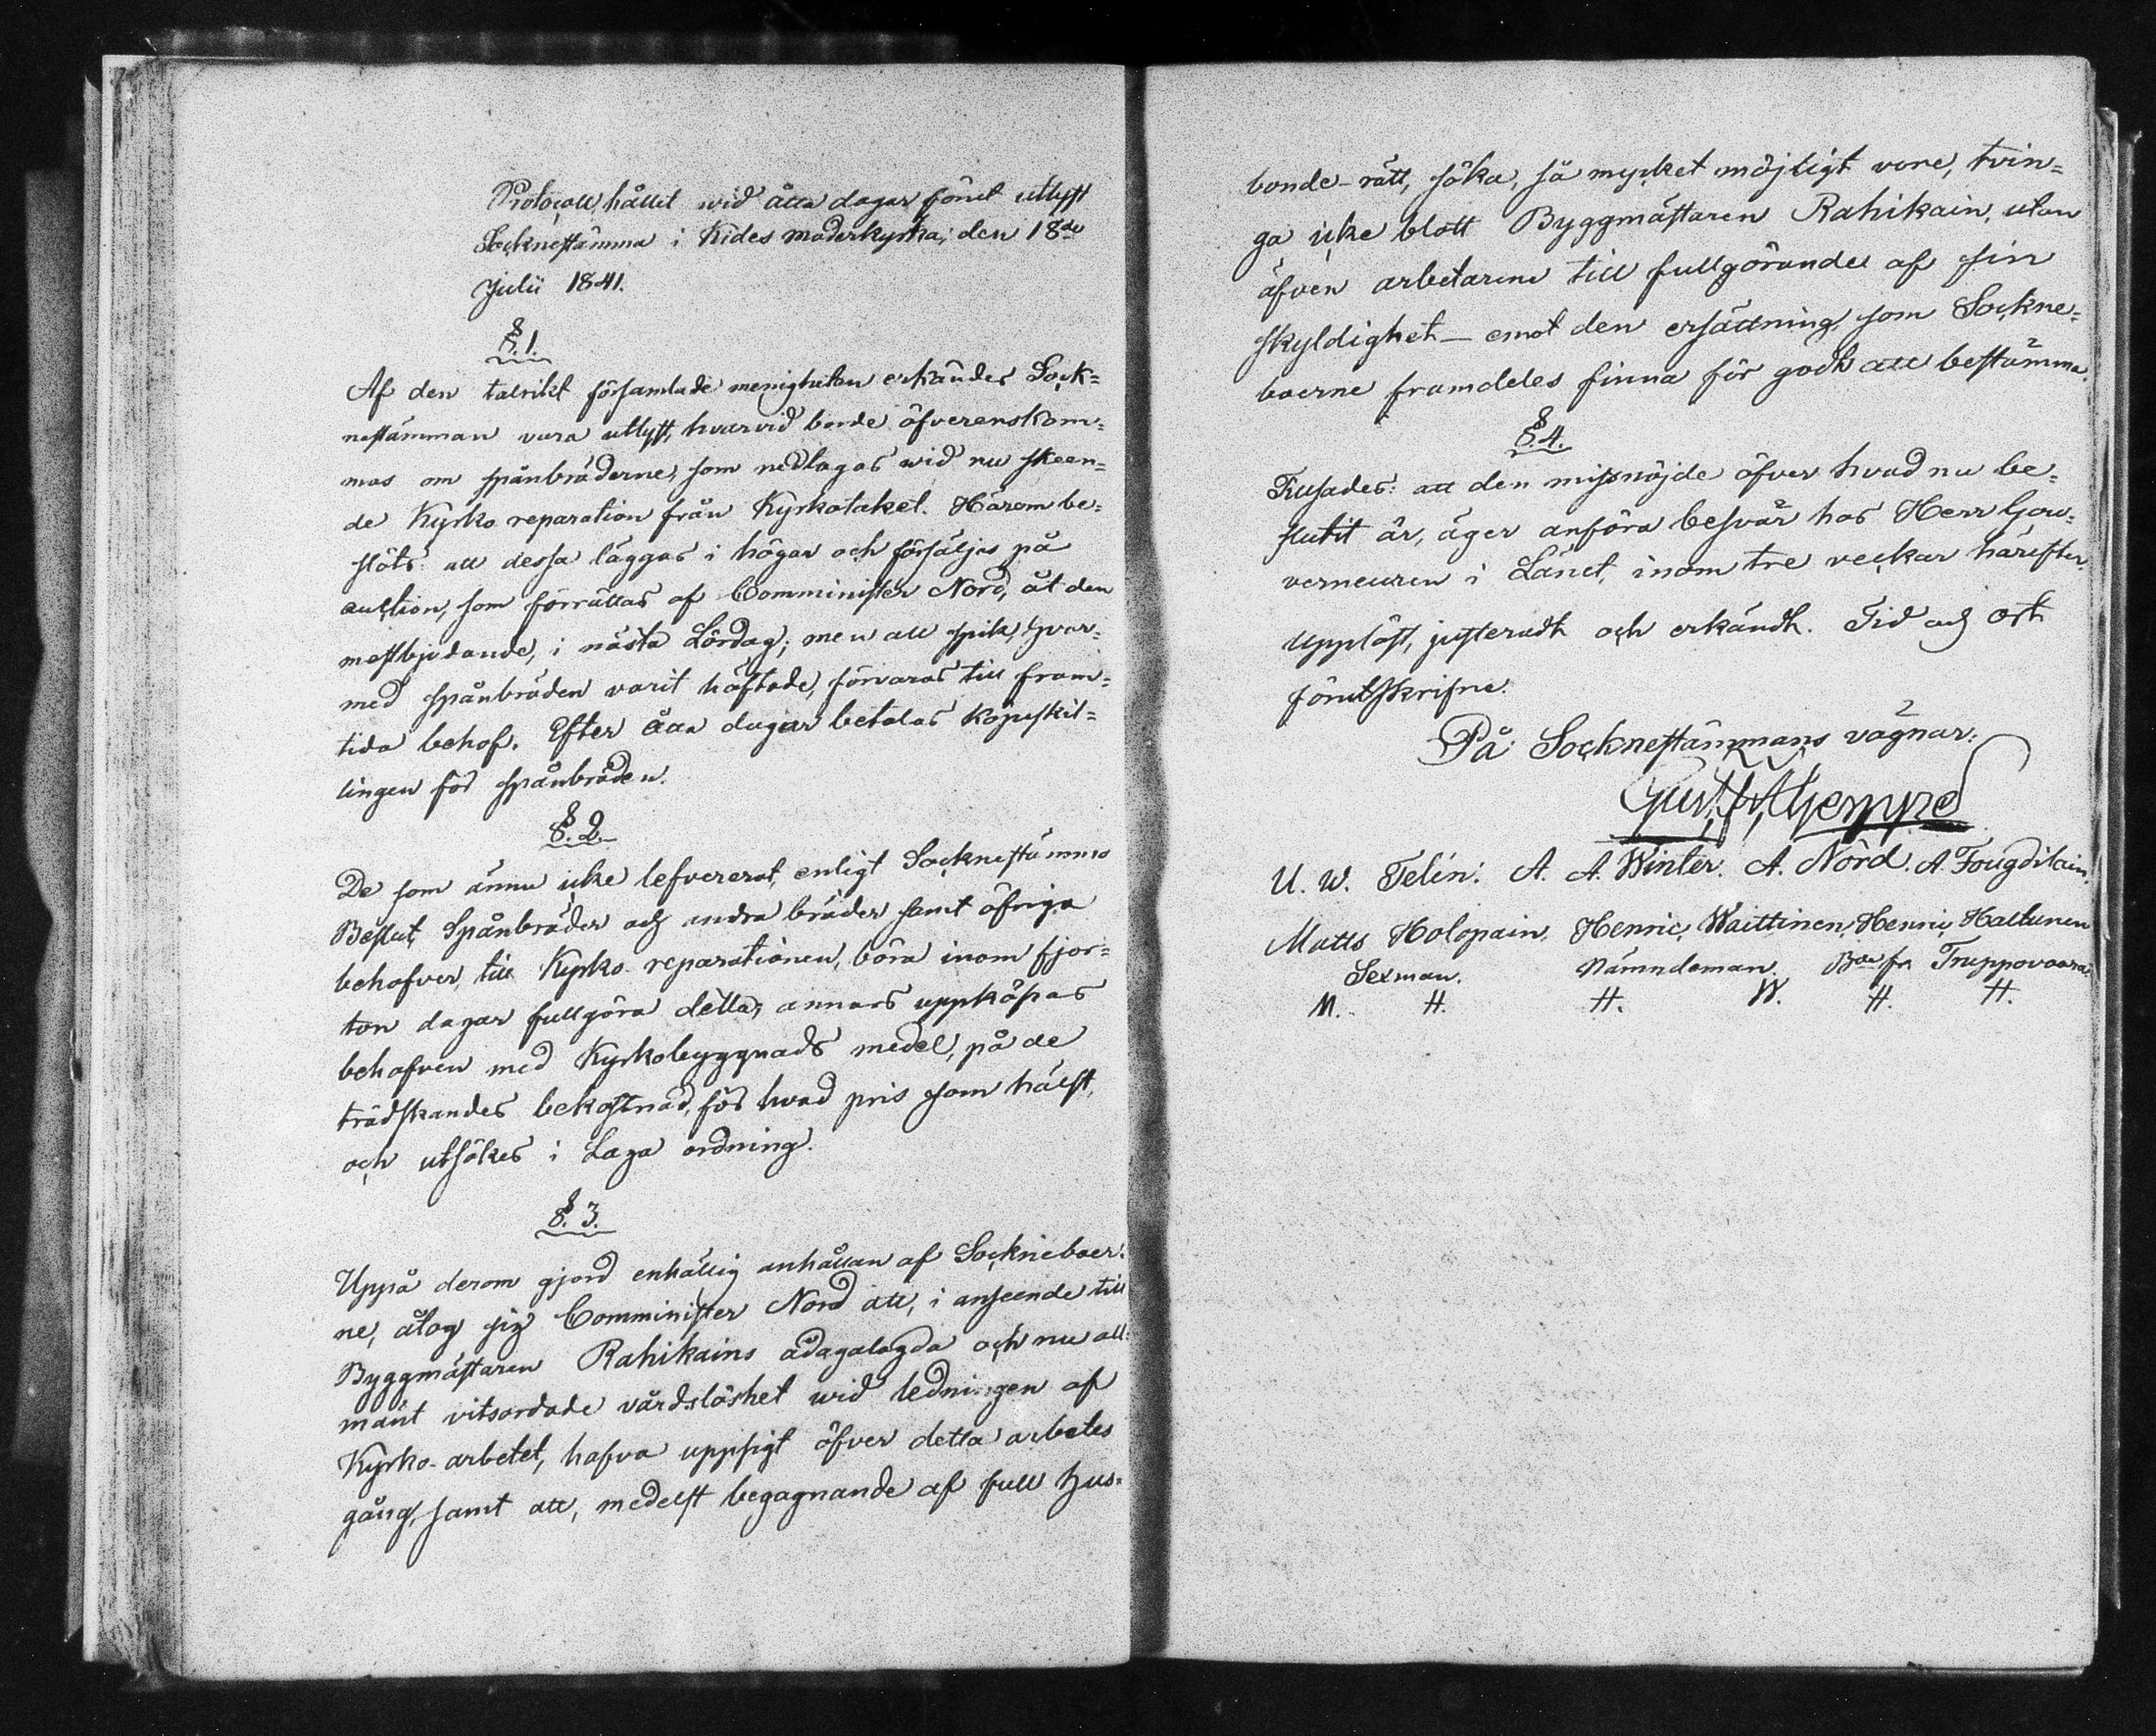 Protocoll, hållit wid åtta dagar förut utlyst
Socknestämma i Kides moderkyrka; den 18de
Julii 1841.
§.1.
Af den talrikt församlade menigheten erkändes Sock=
nestämman vara utlyst, hvarvid borde öfverenskom=
mas om spånbräderne, som nedtagas wid nu skeen=
de Kyrko reparation från Kyrkotaket. Härom be=
slöts att dessa läggas i högar och försäljes på
auction, som förrättas af Comminister Nord, åt den
mestbjudande, i nästa Lördag; men att spik, hvar=
med spånbräden varit häftade, förvaras till fram=
tida behof. Efter åtta dagar betalas köpeskil=
lingen för spånbräden.
§.2.
De som ännu icke lefvererat, enligt Socknestämmo
Beslut, Spånbräder och andra bräder samt öfriga
behofver, till Kyrko reparationen, böra inom fjor=
ton dagar fullgöra detta, annars uppköpas
behofven med Kyrkobyggnads medel, på de
trädskandes bekostnad, för hvad pris som hälst,
och utsökes i Laga ordning.
§.3.
Uppå derom gjord enhällig anhållan af Sockneboer=
ne, åtog sig Comminister Nord att, i anseende till
Byggmästaren Rahikains ådagalagda och nu all=
mänt vitsordade vårdslöshet wid ledningen af
Kyrko-arbetet, hafva uppsigt öfver detta arbetes
gång, samt att, medelst begagnande af full hus=
bonde-rätt, söka, så mycket möjligt vore, tvin=
ga icke blott Byggmästaren Rahikain, utan
äfven arbetarene till fullgörande af sin
skyldighet — emot den ersättning, som Sockne=
boerne framdeles finna för godt att bestämma.
§.4.
att den missnöjde öfver hvad nu be=
slutit är, äger anföra besvär hos Herr Gou=
verneuren i Länet, inom tre veckar härefter.
Uppläst, justeradt och erkändt. Tid och ort
förutskrifne.
På Socknestämmans vägnar:
U. W. Telén. A. A. Winter. A. Nord. A. Fougdilain.
Matts Holopain, Henric Waittinen, Henric Hattunen
Sexman. Nämndeman. fr
M. H. H. W. H. H.